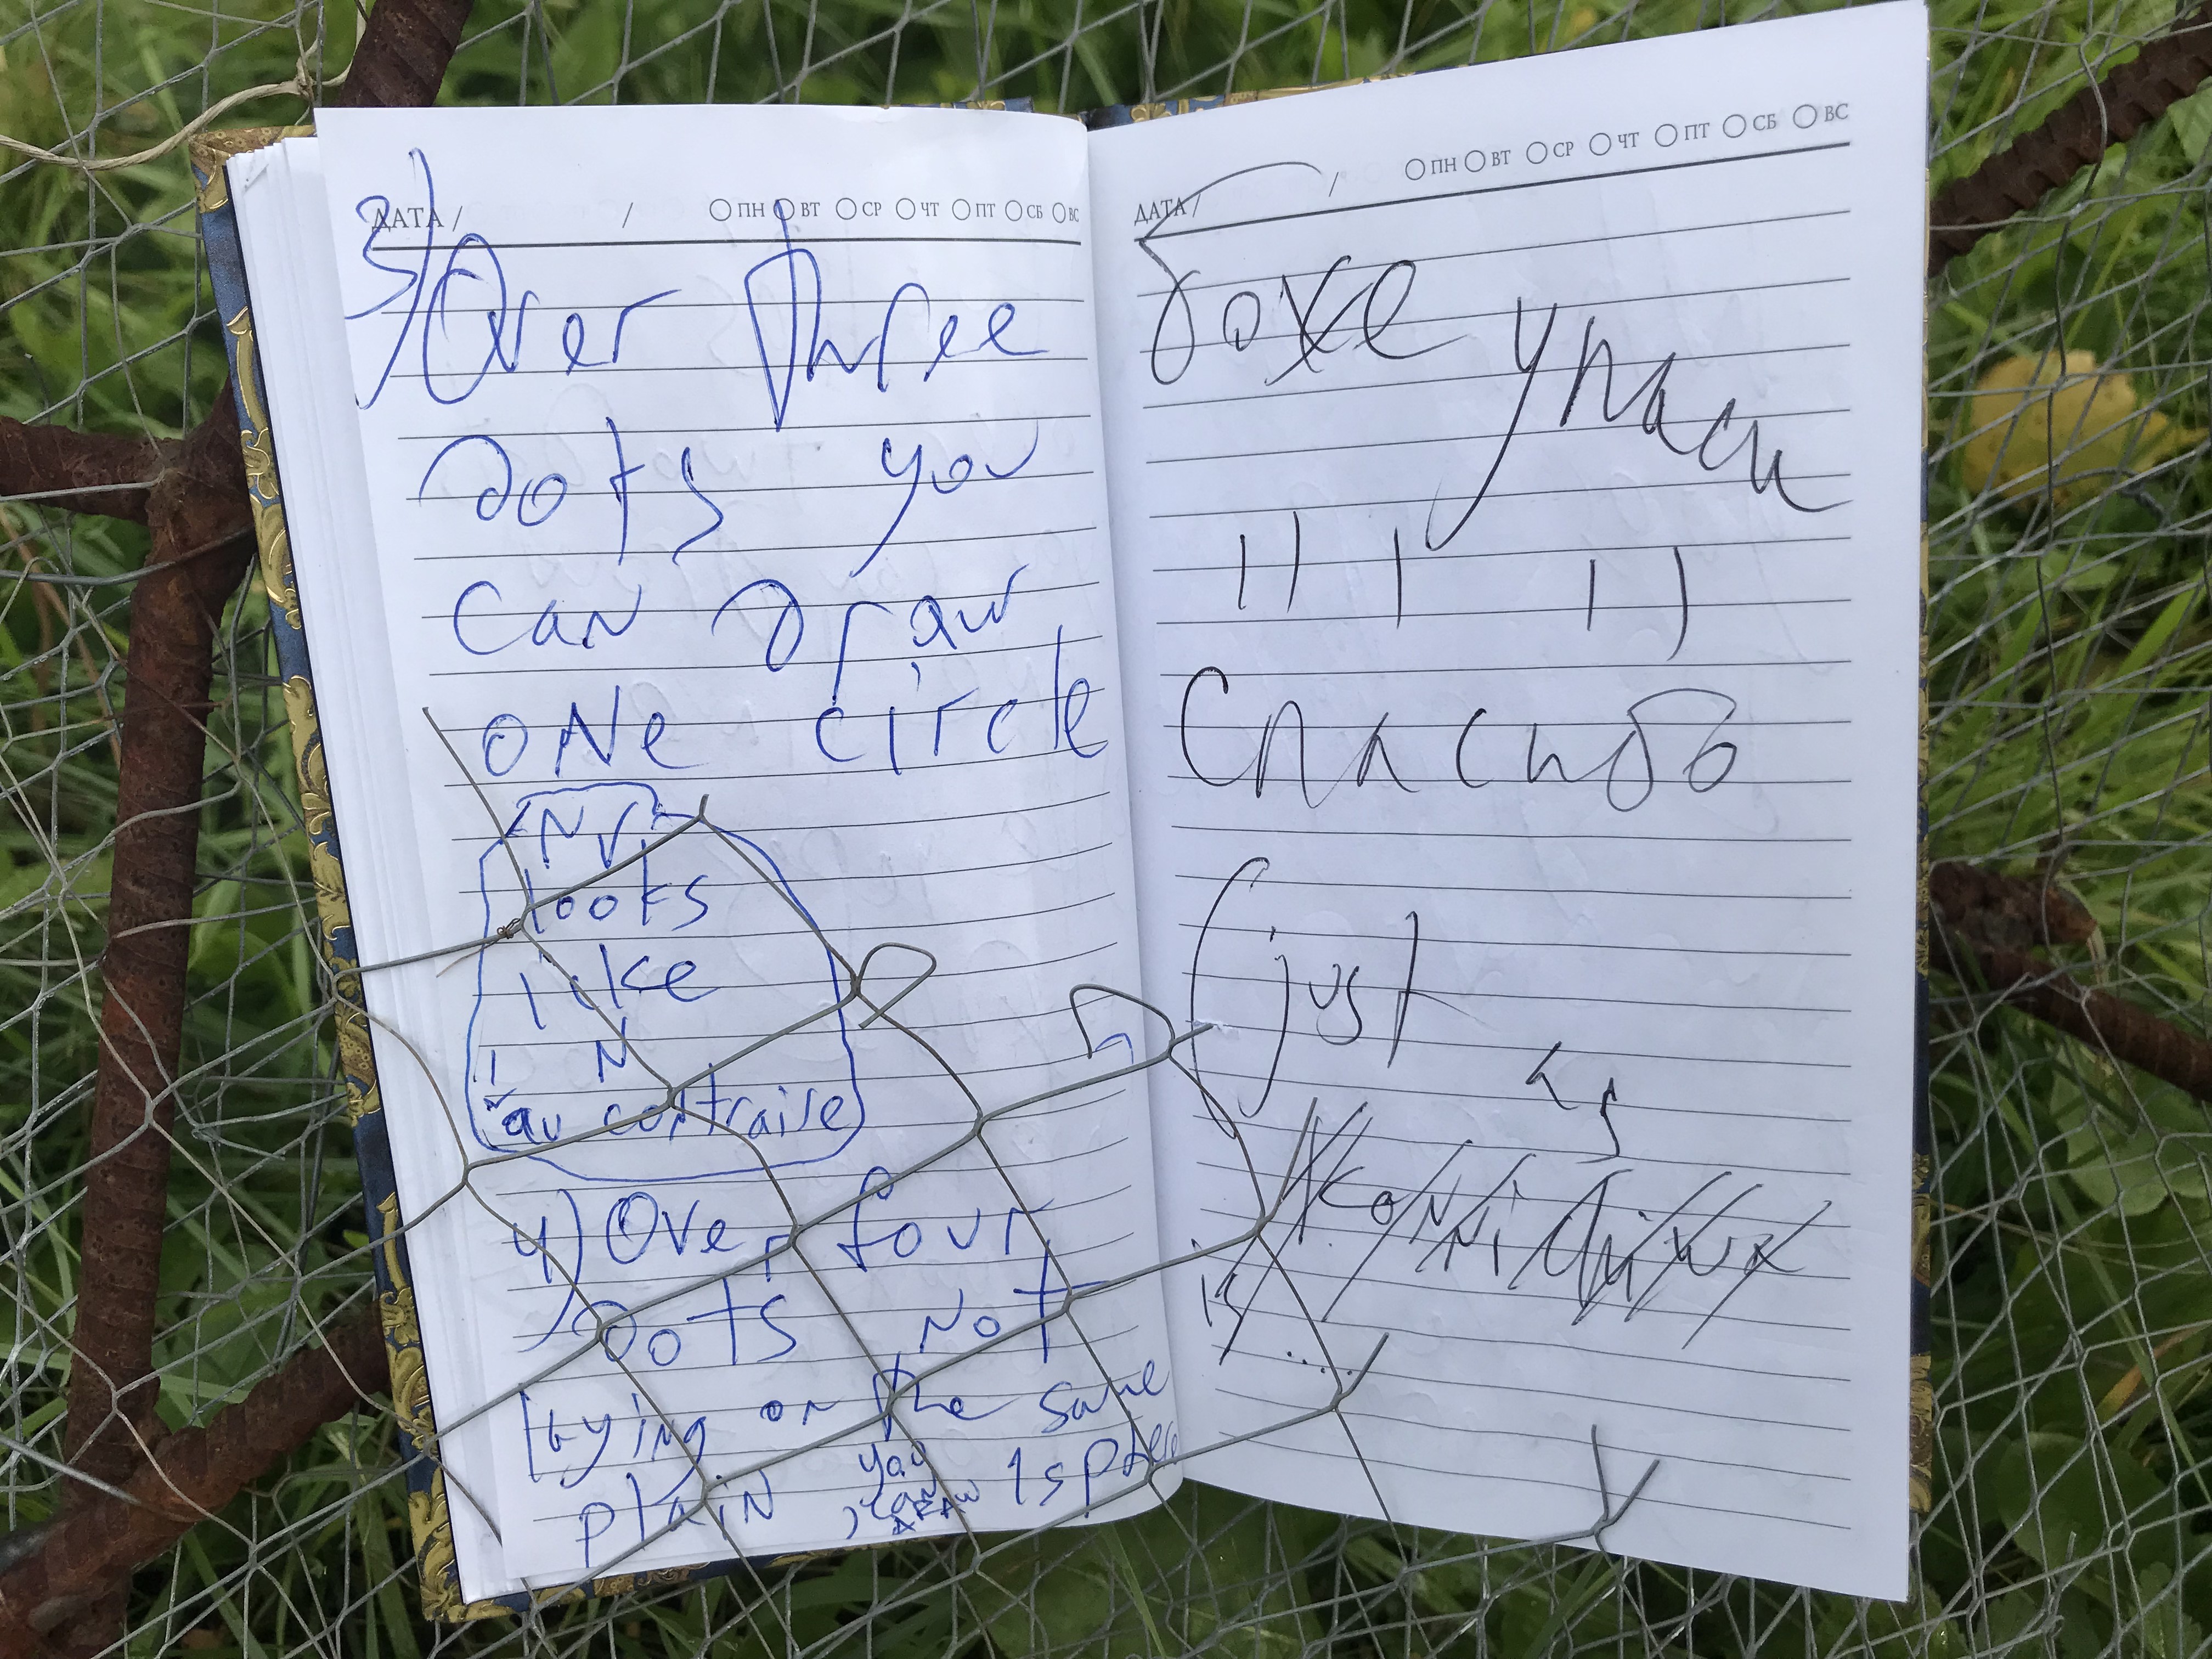 ДАТА / / ПН ВТ СР ЧТ ПТ СБ ВС
3) Over three
dots you
can draw
one circle
"Nr"
looks
like
N
au contraire
4) Over four
dots not
lying on the same
plain , you can draw 1 sphere
ДАТА / / ПН ВТ СР ЧТ ПТ СБ ВС
боже упаси
Спасибо
(just
as
konnichiwa
is .....